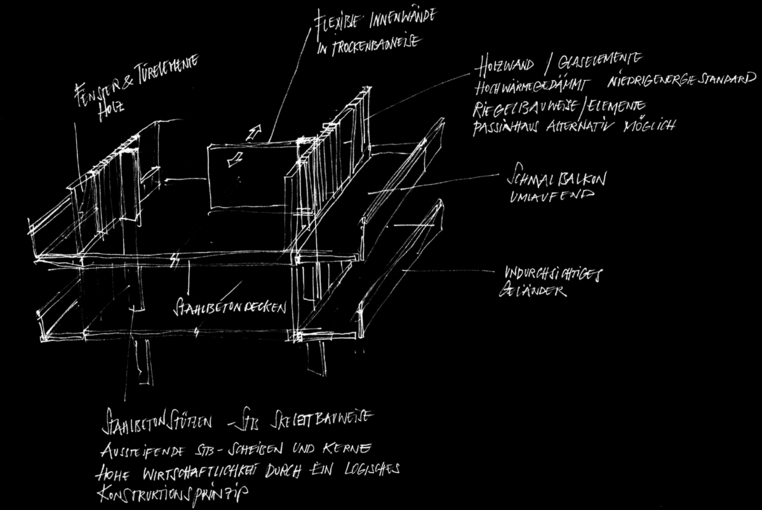 FLEXIBLE INNENWÄNDE
IN TROCKENBAUWEISE
FENSTER & TÜRELEMENTE
HOLZ
HOLZWAND / GLASELEMENTE
HOCHWÄRMEGEDÄMMT NIEDRIGENERGIESTANDARD
RIEGELBAUWEISE / ELEMENTE
PASSIVHAUS ALTERNATIV MÖGLICH
SCHMALBALKON
UMLAUFEND
UNDURCHSICHTIGES
GELÄNDER
STAHLBETONDECKEN
STAHLBETONSTÜTZEN - STB SKELETTBAUWEISE
AUSSTEIFENDE STB-SCHEIBEN UND KERNE
HOHE WIRTSCHAFTLICHKEIT DURCH EIN LOGISCHES
KONSTRUKTIONSPRINZIP